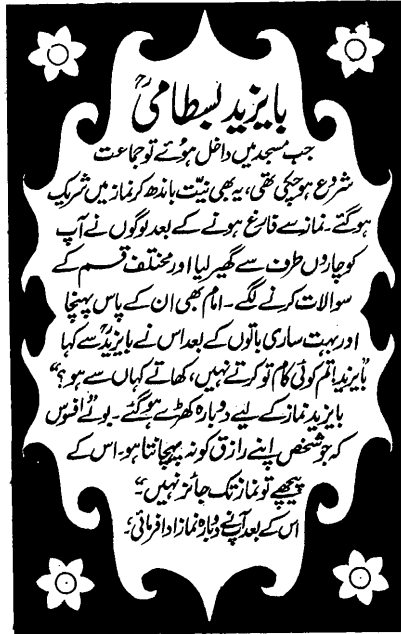 بایزید بسطامیؒ
جب مسجد میں داخل ہوئے تو جماعت
شروع ہوچکی تھی، یہ بھی نیت باندھ کر نماز میں شریک
ہو گئے۔ نماز سے فارغ ہونے کے بعد لوگوں نے آپ
کو چاروں طرف سے گھیر لیا اور مختلف قسم کے
سوالات کرنے لگے۔ امام بھی ان کے پاس پہنچا
اور بہت ساری باتوں کے بعد اس نے بایزیدؒ سے کہا
"بایزید! تم کوئی کام تو کرتے نہیں، کھاتے کہاں سے ہو؟"
بایزید نماز کے لیے دوبارہ کھڑے ہو گئے۔ بولے "افسوس
کہ جو شخص اپنے رازق کو نہ پہچانتا ہو۔ اس کے
پیچھے تو نماز تک جائز نہیں۔"
اس کے بعد آپ نے دوبارہ نماز ادا فرمائی۔